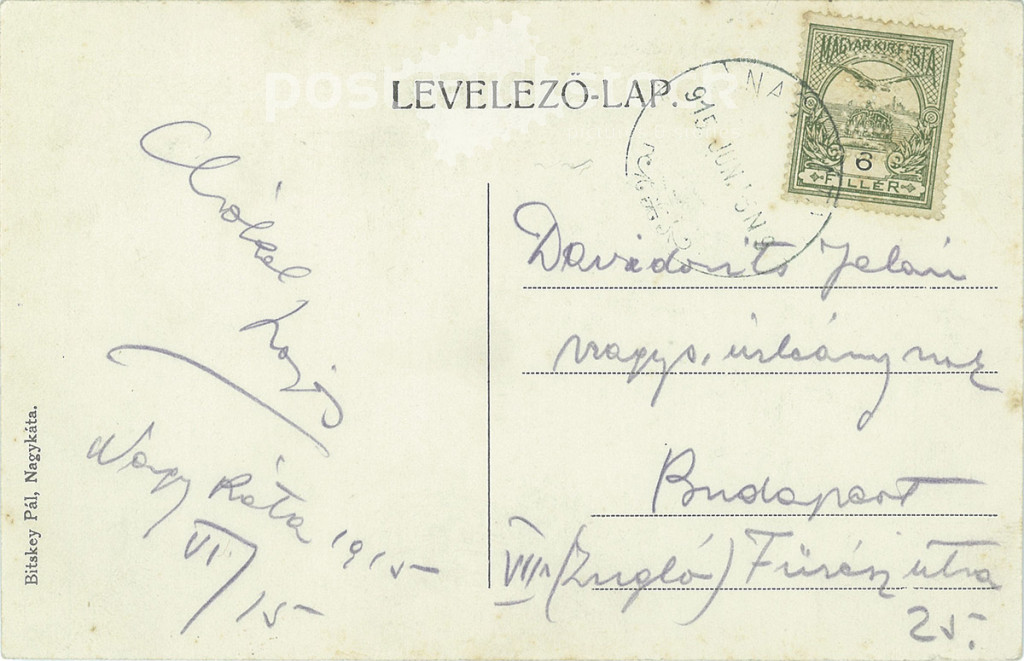 LEVELEZŐ-LAP.
MAGYAR KIR. POSTA
6
FILLÉR
915 JUN. 15
Lajos
Nagy Káta 1915
VI/15
Bitskey Pál, Nagykáta.
Davidovits Jolán
nagys. úrleány nak
Budapest
VIII (Zugló) Fürész utca
25.